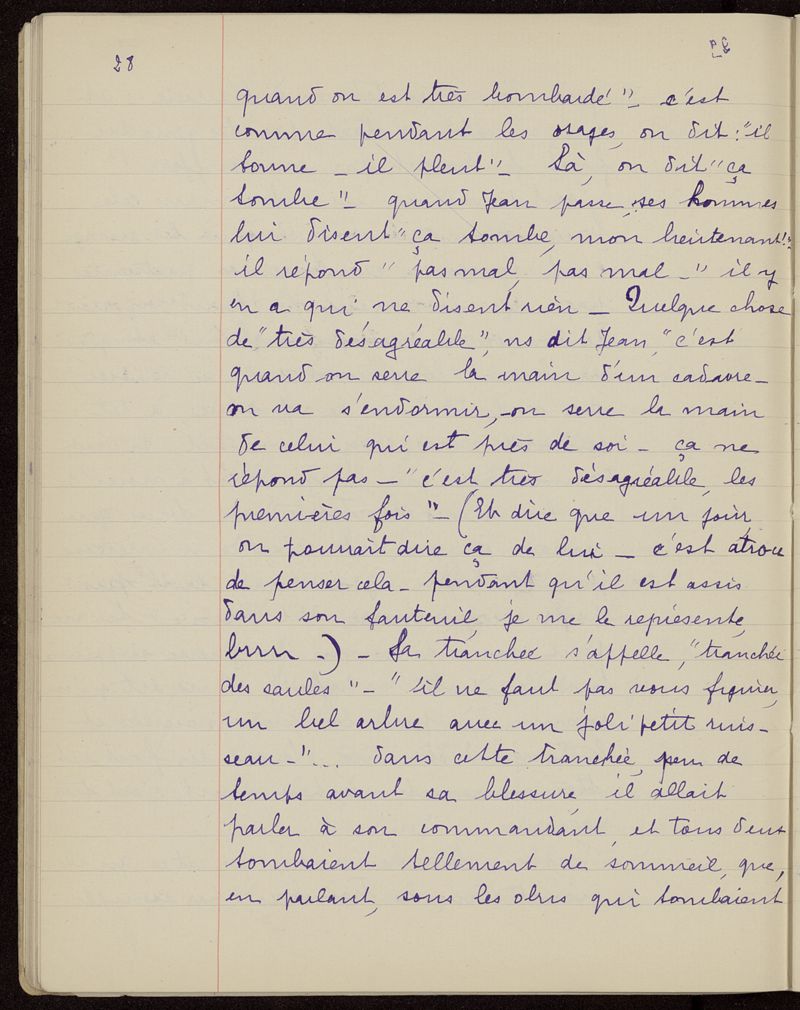 28
quand on est très bombardé" – c'est
comme pendant les orages, on dit : "il
tonne – il pleut" – Là, on dit "ça
tombe" – quand Jean passe, ses hommes
lui disent "ça tombe, mon lieutenant!"
il répond "pas mal, pas mal –" il y
en a qui ne disent rien – Quelque chose
de "très désagréable", ns dit Jean, "c'est
quand on serre la main d'un cadavre –
on va s'endormir, – on serre la main
de celui qui est près de soi – ça ne
répond pas – "c'est très désagréable, les
premières fois" – (Et dire que un jour,
on pourrait dire ça de lui – c'est atroce
de penser cela – pendant qu'il est assis
dans son fauteuil, je me le représente,
brrrr –) – Sa tranchée s'appelle, "tranchée
des saules" – "il ne faut pas vous figurer,
un bel arbre avec un joli petit ruis–
seau –"... dans cette tranchée, peu de
temps avant sa blessure, il allait
parler à son commandant, et tous deux
tombaient tellement de sommeil, que,
en parlant, sous les obus qui tombaient